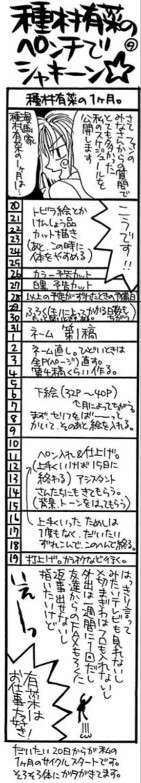 種村有菜の
ペンチで
シャキーン☆
種村有菜の1ヶ月。
さて、ファンの
みなさんからの質問で
とても多かった
スケジュールを
公開します
漫画家
種村有菜の1ヶ月は
こうです!!
20
21
22
23
24
25
トビラ絵とか
けしょう品
カット描き
(あと、この時に
体をやすめる)
26
カラー予告カット
27
白黒 予告カット
28
以上の予定がずれたときの予備日
29
30
31
1
ネーム 第1稿
2
3
4
ネーム直し。ひどいときは
全P(ページ)直す。
第4稿くらい作る。
5
6
7
8
9
下絵 (32P〜40P)
七月によってちがう
まず、セリフをばーっと
かいて、そのあと、絵を入れる。
10
11
12
13
14
15
ペン入れ&仕上げ。
(上手くいけば 15日に
終わる) アシスタント
さんたちにもきてもらう。
(背景、トーンをはってもらう)
16
17
18
上手くいった ためしは
1度もなく、だいたい
ずれこんで、このへんで終る。
19
打上げ。カラオケなど行く。
はっきり言って
みたいテレビも見れない
〆切前はフロも入れない
外出は一週間に1回だし
友達からFAXもらっても
返事出せないし
描いたりけど
いえーっ
有菜は
お仕事大好き!
だいたい20日からが私の
1ヶ月のサイクルスタートです。
そろそろ体にガタがきてます。